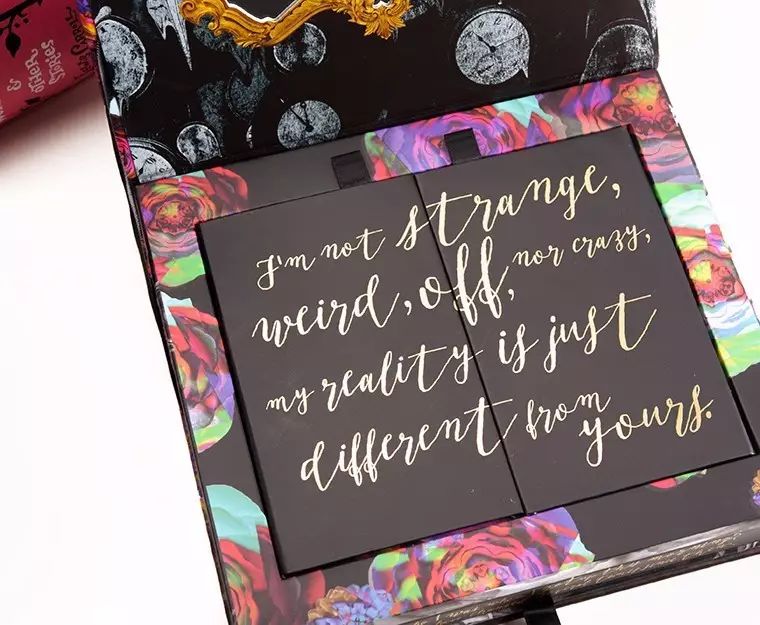 & OTHER
STORIES
I'm not strange,
weird, off, nor crazy,
my reality is just
different from
yours.